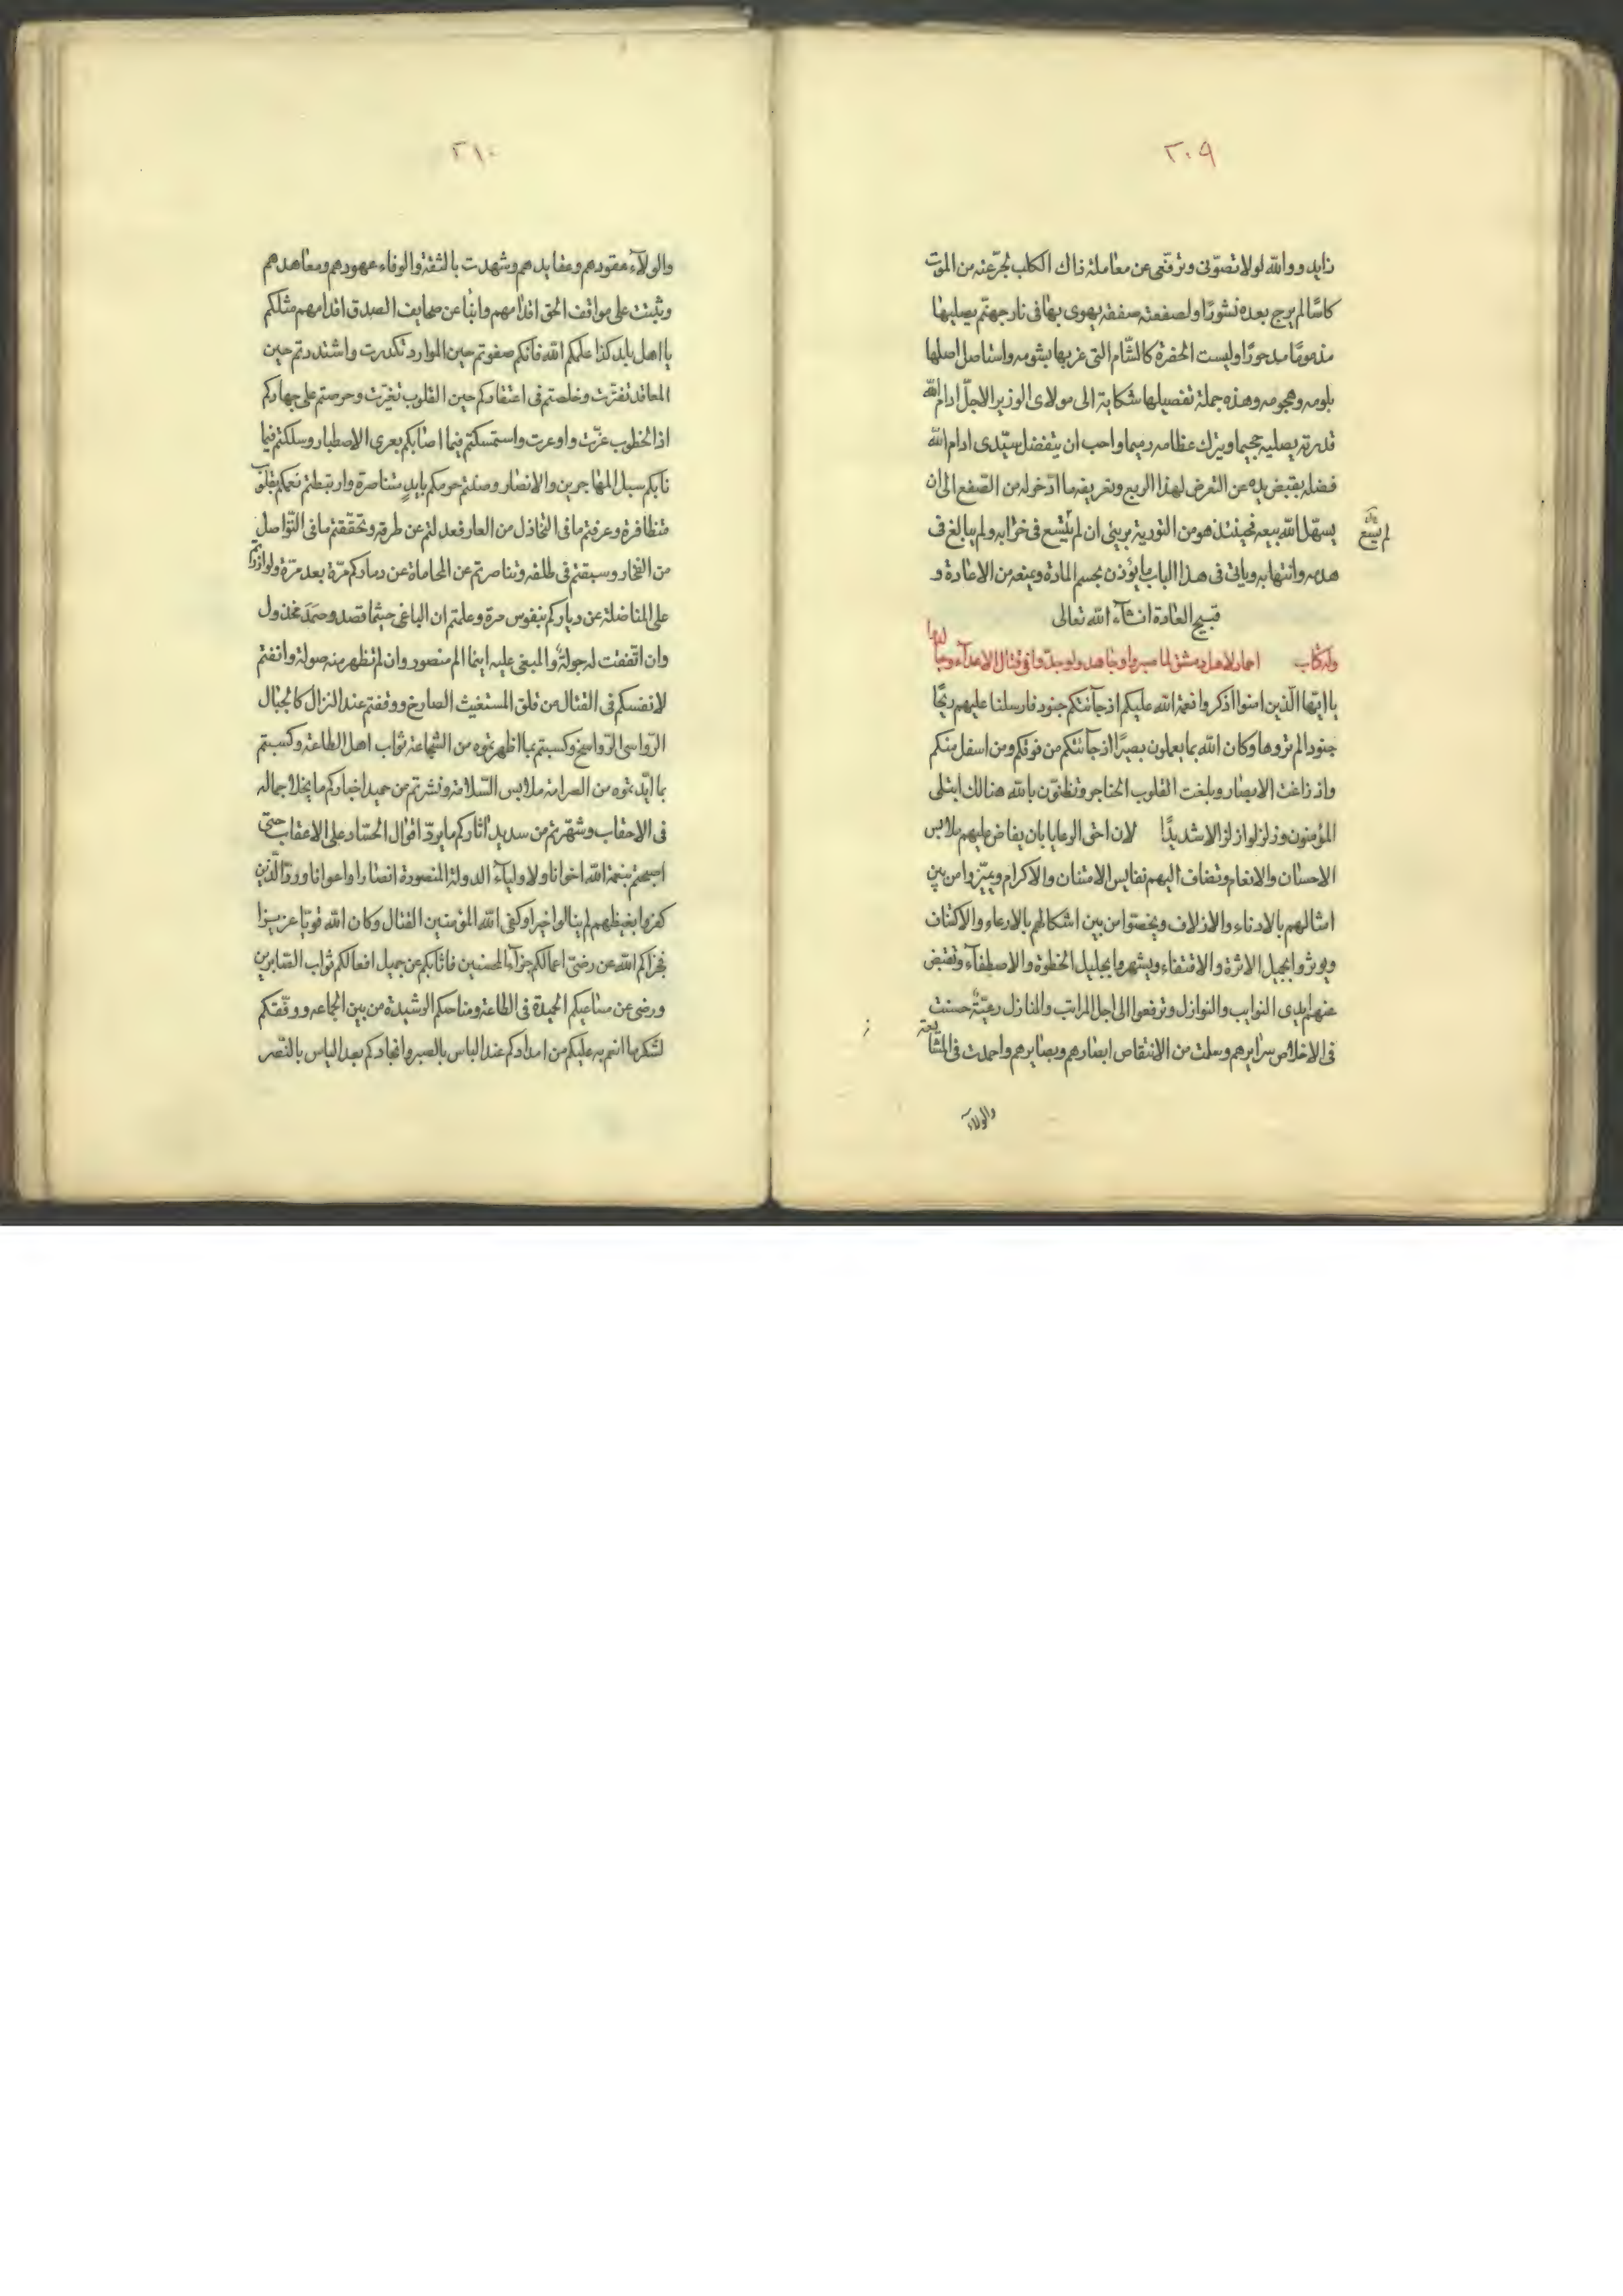 ٢٠٩
زايد ووالله لولا تصوّنى وترقّى عن معاملة ذاك الكلب لجرّعته من الموت
كاسًا لم يرج بعده نشورًا ولصفعته صفقة يهوى بها فى نار جهنّم يصليها
مذمومًا مدحورًا وليست الحفرة كالشّام التى خربها بشومه واستاصل اصلها
بلومه وهجومه وهذه جملة تفصيلها شكاية الى مولاى الوزير الاجلّ ادام الله
قدرته يصليه جحيما ويترك عظامه رميما واحب ان يتفضل سيّدى ادام الله
فضله بقبض يده عن التعرض لهذا الربع وتعريفه ما ادّخر له من الصّفع الى ان
يسهّل الله بيعه فحينئذ هو من التورية برىئ ان لم يتّسع فى خرابه ولم يبالغ فى
لم يتسع
هدمه وانتهابه وياتى فى هذا الباب ما يؤذن بحسم المادة ويمنعه من الاعادة و
قبيح العادة انشآء الله تعالى
وله كتاب احماد لاهل دمشق لما صبروا وجاهدوا وجدّوا فى قتال الاعدآء وجا
لدوا
يا ايّها الّذين امنوا اذكروا نعمة الله عليكم اذ جآئتكم جنود فارسلنا عليهم ريحًا
جنودا لم تروها وكان الله بما يعملون بصيرًا اذ جآئتكم من فوقكم ومن اسفل منكم
واذ زاغت الابصار وبلغت القلوب الحناجر وتظنّون بالله هنالك ابتلى
المؤمنون وزلزلوا زلزالا شديدًا لان احق الرعايا بان يفاض عليهم ملابس
الاحسان والانعام وتضاف اليهم نفايس الامتنان والاكرام ويميّزوا من بين
امثالهم بالادناء والازلاف ويخصّوا من بين اشكالهم بالارعاء والاكناف
ويوثروا بجميل الاثرة والاقتفاء ويشهروا بجليل الحظوة والاصطفآء وتقبض
عنهم ايدى النوايب والنوازل وترفعوا الى اجل المراتب والمنازل رعيّة حسنت
فى الاخلاص سرايرهم وسلمت من الانتقاص ابصارهم وبصايرهم واحمدت فى المشا
يعة
والولآء
٢١٠
والولآء عقودهم وعقايدهم وشهدت بالثقة والوفاء عهودهم ومعاهدهم
وثبتت على مواقف الحق اقدامهم وانبا عن صحايف الصدق اقدامهم مثلكم
يا اهل بلد كذا عليكم الله فانكم صفوتم حين الموارد تكدرت واشتددتم حين
المعاقد تفترّت وخلصتم فى اعتقادكم حين القلوب تغيّرت وحرصتم على جهادكم
اذ الخطوب عزّت واوعرت واستمسكتم فيما اصابكم بعرى الاصطبار وسلكتم فيما
نابكم سبل المهاجرين والانصار وصنتم حرمكم بايدٍ متناصرة وارتبطتم نعمكم بقلوب
متظافرة وعرفتم ما فى التخاذل من العار فعدلتم عن طرقه وتحققتم ما فى التّواصل
من الفخار وسبقتم فى طلقه وتناصرتم عن المحاماة عن دماركم مرّة بعد مرّة وتوازرتم
على المناضلة عن دياركم بنفوس حرة وعلمتم ان الباغى حيثما قصد وصمَدَ مخذول
وان اتّفقت له جولةٌ والمبغى عليه اينما الم منصور وان لم تظهر منه صولة وانفتم
لانفسكم فى القتال من قلق المستغيث الصارخ ووقفتم عند النزال كالجبال
الرّواسى الرّواسخ وكسبتم بما اظهرتموه من الشجاعة ثواب اهل الطاعة وكسيتم
بما ابّدتموه من الصرامة ملابس السّلامة ونشرتم من حميد اخباركم ما يخلد جماله
فى الاحقاب وشهّرتم من سديد اثاركم ما يردّ اقوال الحسّاد على الاعقاب حتى
اصبحتم بنعمة الله اخوانا ولاوليآء الدولة المنصورة انصارا واعوانا وردّ الّذين
كفروا بغيظهم لم ينالوا خيرا وكفى الله المؤمنين القتال وكان الله قويّا عزيزا
فجزاكم الله عن رضىّ اعمالكم جزآء المحسنين فاثابكم عن جميل افعالكم ثواب الصّابرين
ورضى عن مساعيكم الحميدة فى الطاعة ومناحيكم الرشيدة من بين الجماعه ووفّقكم
لشكر ما انعم به عليكم من امدادكم عند الباس بالصبر وانجادكم بعد الياس بالنّصر